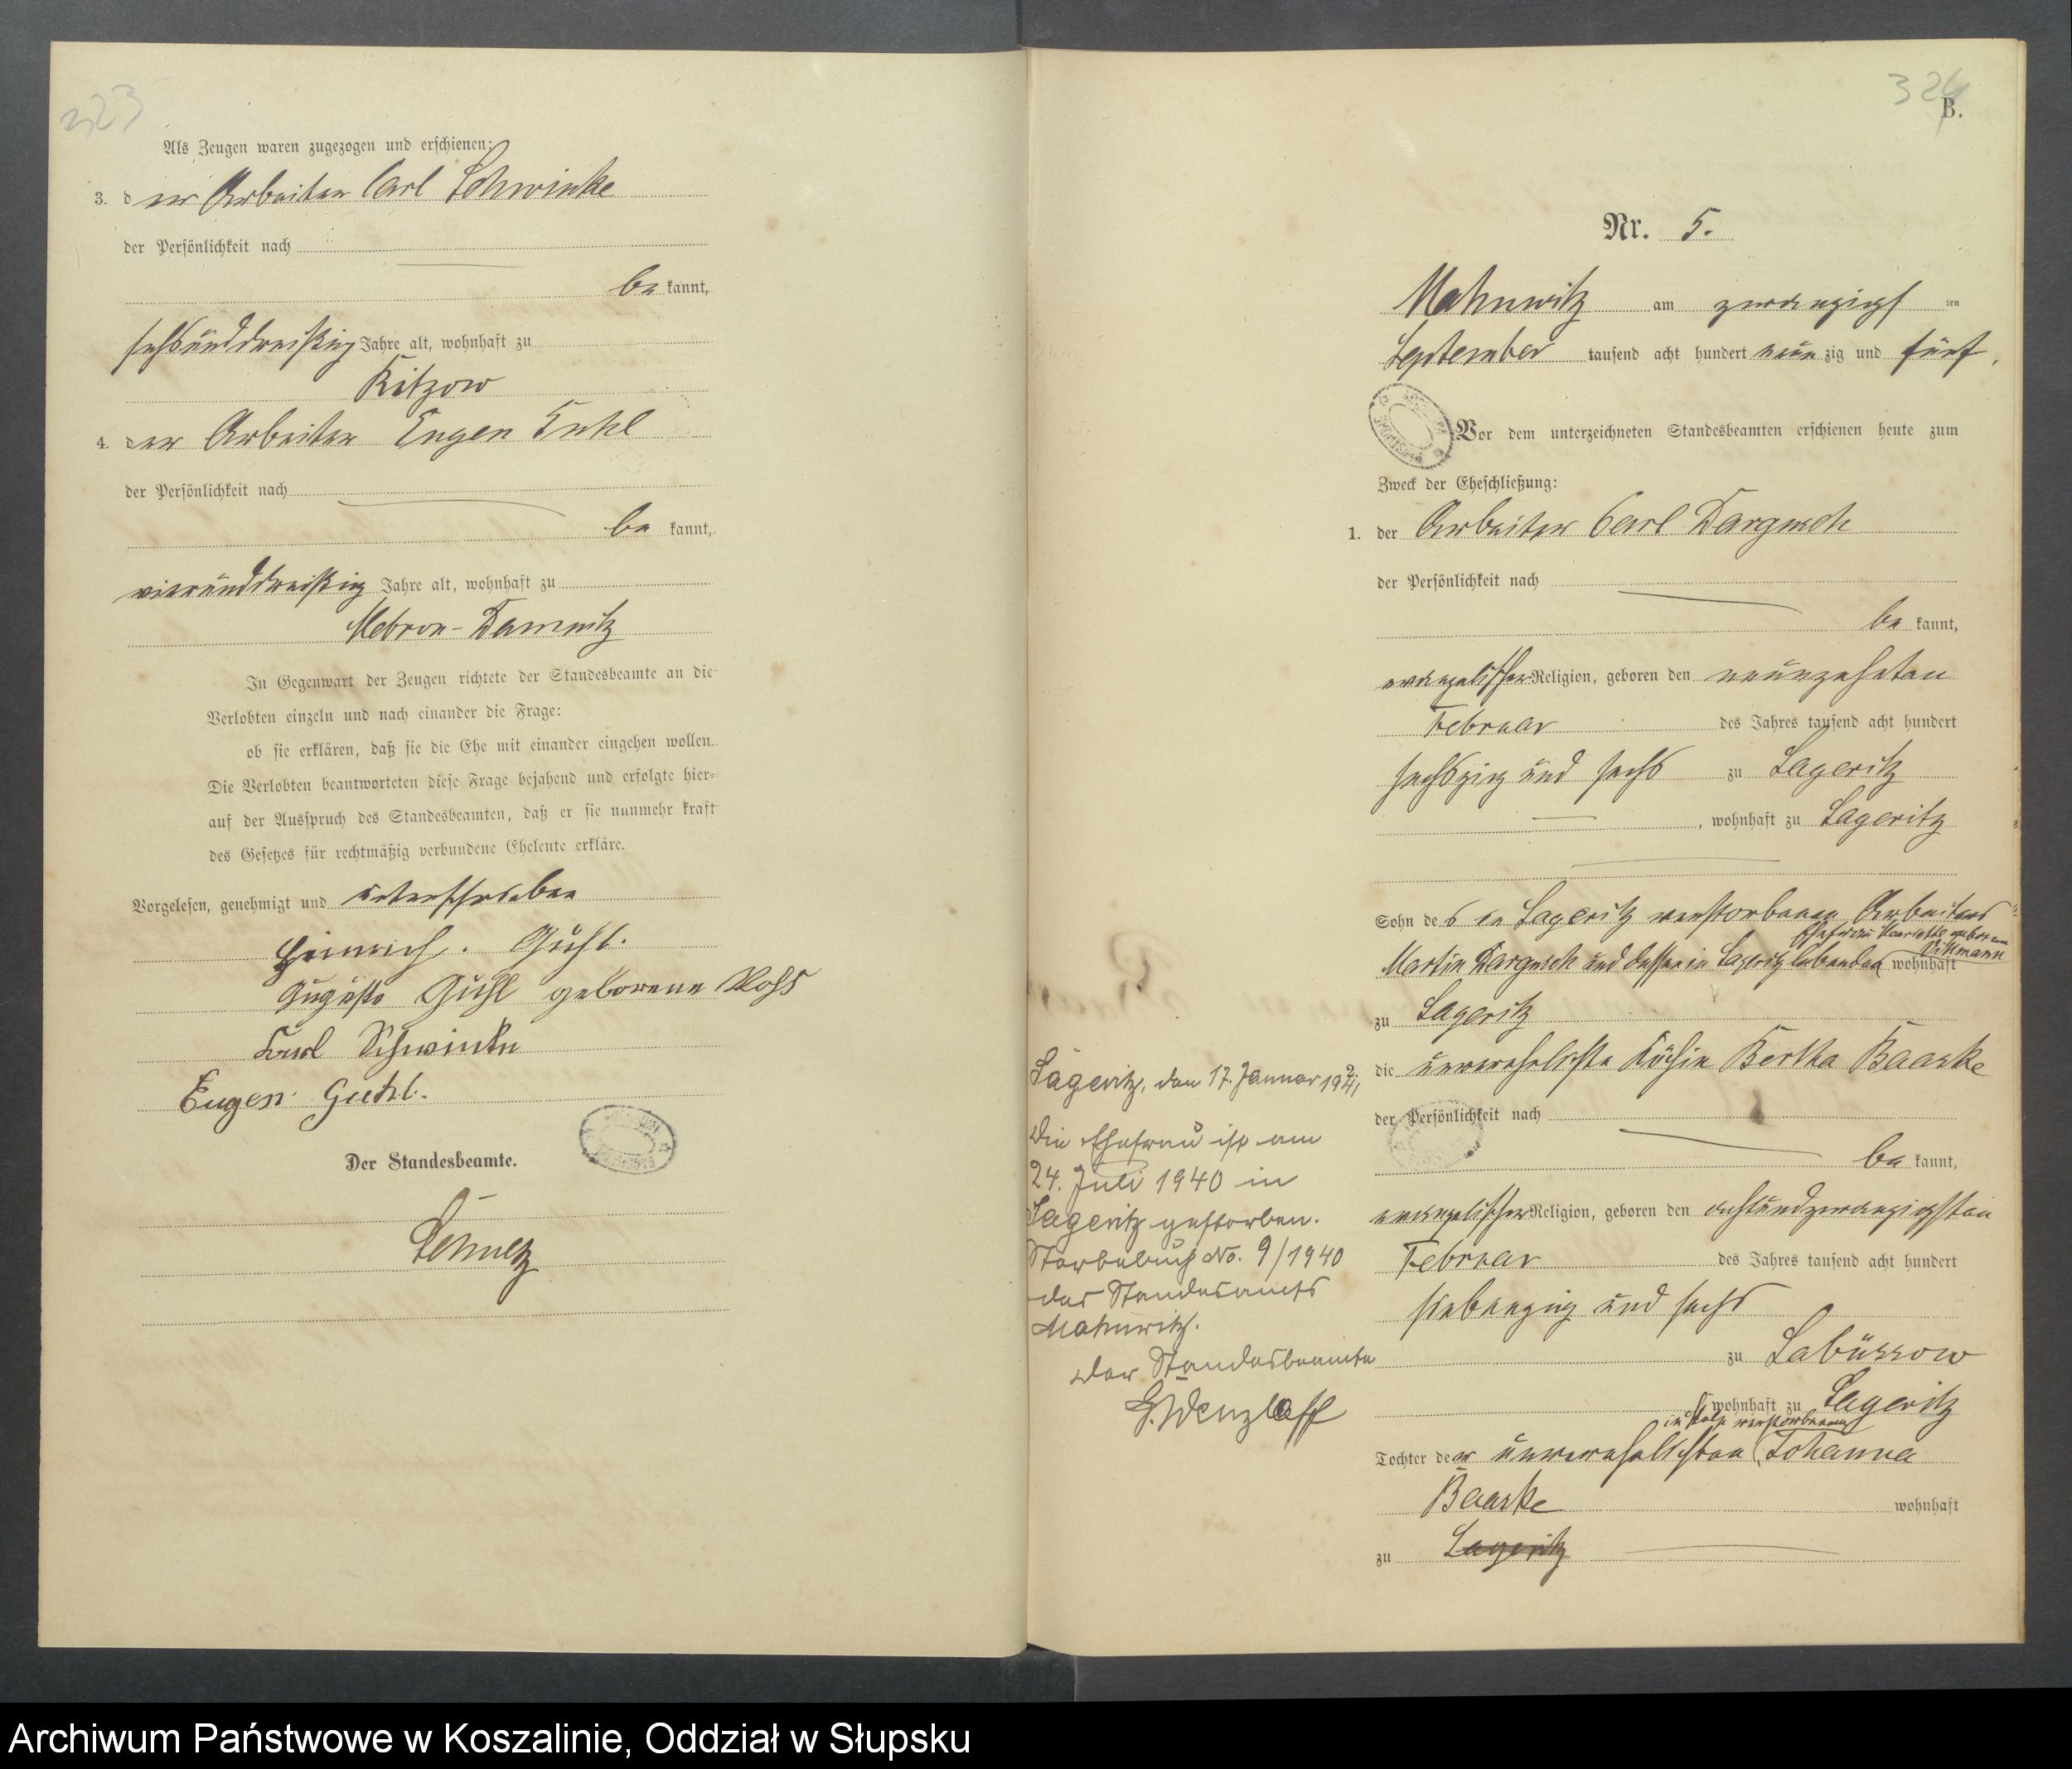 323
Als Zeugen waren zugezogen und erschienen:
3. der Arbeiter Carl Schwinke
der Persönlichkeit nach
be kannt,
sechsunddreißig Jahre alt, wohnhaft zu
Kitzow
4. der Arbeiter Eugen Guhl
der Persönlichkeit nach
be kannt,
vierunddreißig Jahre alt, wohnhaft zu
Mebron-Damnitz
In Gegenwart der Zeugen richtete der Standesbeamte an die
Verlobten einzeln und nach einander die Frage:
ob sie erklären, daß sie die Ehe mit einander eingehen wollen.
Die Verlobten beantworteten diese Frage bejahend und erfolgte hier-
auf der Ausspruch des Standesbeamten, daß er sie nunmehr kraft
des Gesetzes für rechtmäßig verbundene Eheleute erkläre.
Vorgelesen, genehmigt und unterschrieben
Heinrich. Guhl.
Auguste Guhl geborene
Karl Schwinke
Eugen Guhl.
Der Standesbeamte.
324
B.
Nr. 5.
Mahnwitz am zwanzigsten
September tausend acht hundert neunzig und fünf.
Vor dem unterzeichneten Standesbeamten erschienen heute zum
Zweck der Eheschließung:
1. der Arbeiter Carl Dargusch
der Persönlichkeit nach
be kannt,
evangelischer Religion, geboren den neunzehnten
Februar des Jahres tausend acht hundert
sechszig und sechs zu Lageritz
, wohnhaft zu Lageritz
Sohn des in Lageritz verstorbenen Arbeiters
Ehefrau Henriette geborene
Martin Dargusch und dessen in Lageritz lebenden wohnhaft
zu Lageritz
die unverehelichte Köchin Bertha Baaske
der Persönlichkeit nach
be kannt,
evangelischer Religion, geboren den achtundzwanzigsten
Februar des Jahres tausend acht hundert
siebenzig und sechs
zu Labüssow
, wohnhaft zu Lageritz
in Stolp verstorbenen
Tochter der unverehelichten Johanna
Baaske wohnhaft
zu Lageritz
Lageritz, den 17. Januar 1941
Die Ehefrau ist am
24. Juli 1940 in
Lageritz gestorben.
Sterbebuch No. 9/1940
des Standesamts
Mahnwitz.
Der Standesbeamte
G. Wenzlaff
Archiwum Państwowe w Koszalinie, Oddział w Słupsku